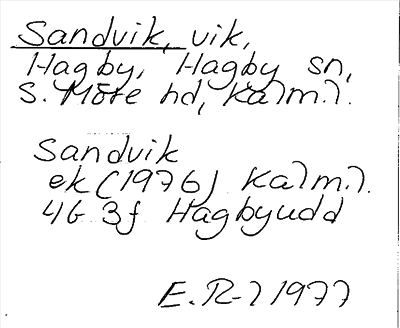 Sandvik, vik,
Hagby, Hagby sn,
S. Möre hd, Kalm.l.
Sandvik
ek (1976) Kalm.l.
4G 3f Hagbyudd
E.R-l 1977